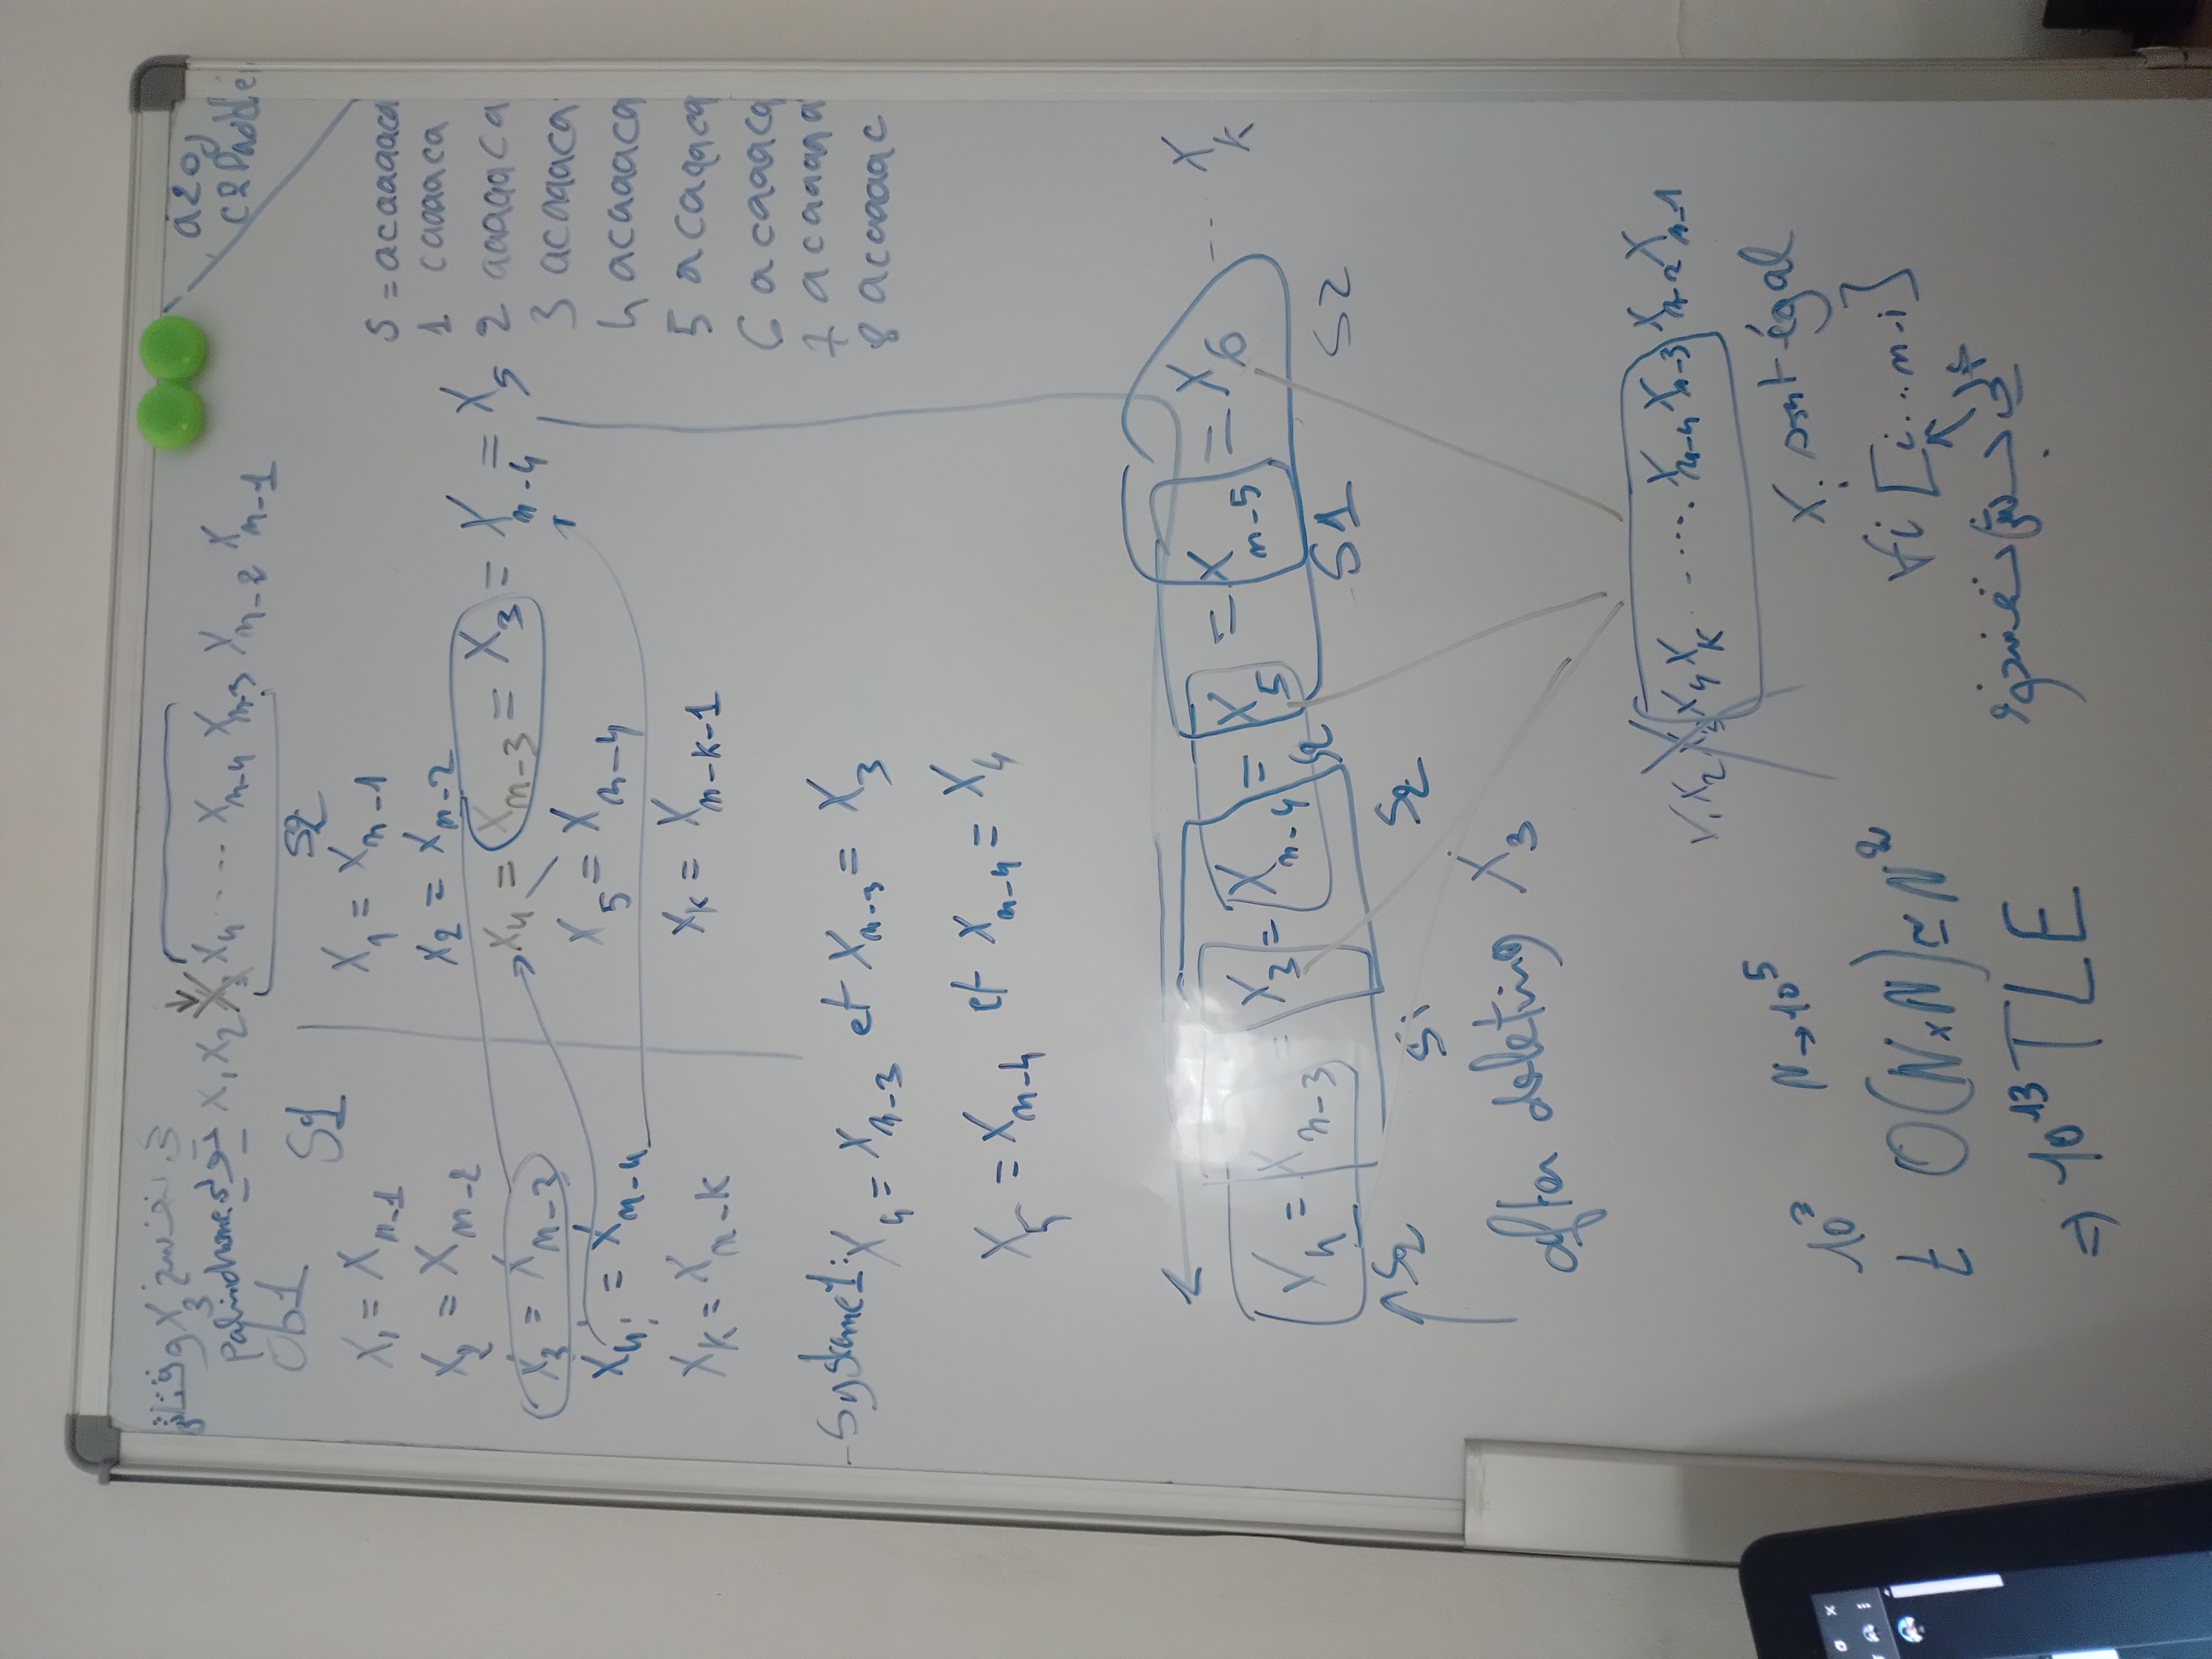 X₃ و
palindrome X₁ X₂ X₃ X₄ .... Xₙ₋₄ Xₙ₋₃ Xₙ₋₂ Xₙ₋₁
a2oj
Ob1
S1
S2
X₁ = Xₙ₋₁
X₂ = Xₙ₋₂
X₃ = Xₙ₋₃
X₄ = Xₙ₋₄
Xₖ = Xₙ₋ₖ
X₁ = Xₙ₋₁
X₂ = Xₙ₋₂
X₄ = Xₙ₋₃ = X₃ = Xₙ₋₄ = X₅
X₅ = Xₙ₋₄
Xₖ = Xₙ₋ₖ₋₁
S = acaaaaca
1 caaaaca
2 aaaaaca
3 acaaaca
4 acaaaca
5 acaaaca
6 acaaaca
7 acaaaaa
8 acaaaac
- Systeme1: X₄ = Xₙ₋₃ et Xₙ₋₃ = X₃
X₅ = Xₙ₋₄ et Xₙ₋₄ = X₄
X₄ = Xₙ₋₃ = X₃ = Xₙ₋₄ = X₅ = Xₙ₋₅ = X₆ ... Xₖ
S2 S1 S2 S2 S1 S2
after deleting X₃
X₁ X₂ X₃ X₄ Xₖ ...... Xₙ₋₄ Xₙ₋₃ Xₙ₋₂ Xₙ₋₁
Xᵢ sont égal
∀i [i...n-i]
10³ N→10⁵
t O(N×N) ≃ N²
⇒ 10¹³ TLE